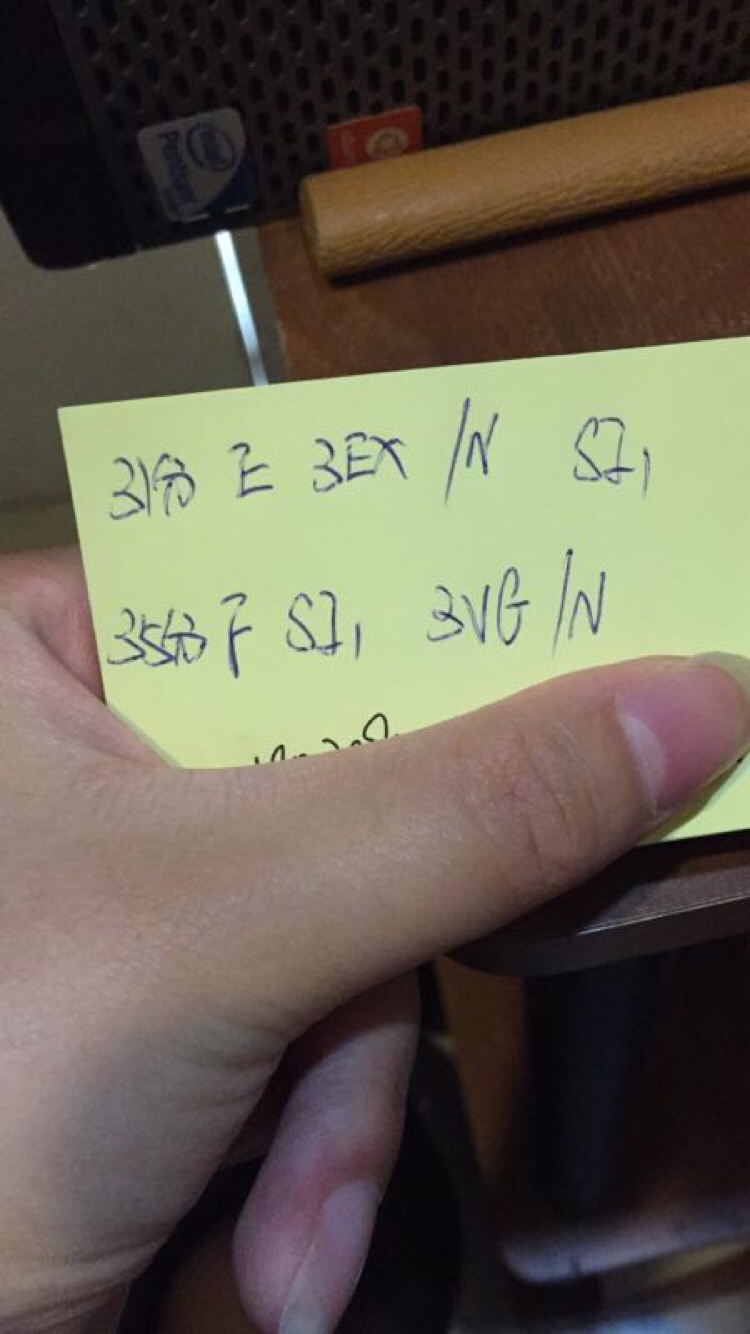 intel
Pentium
31分 E 3EX /N SI1
35分 F SI1 3VG /N